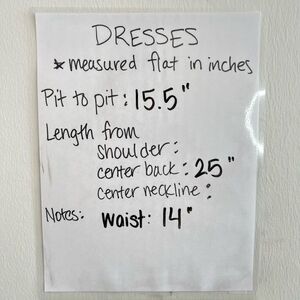 DRESSES
* measured flat in inches
Pit to pit: 15.5"
Length from
shoulder:
center back: 25"
center neckline:
Notes: Waist: 14"